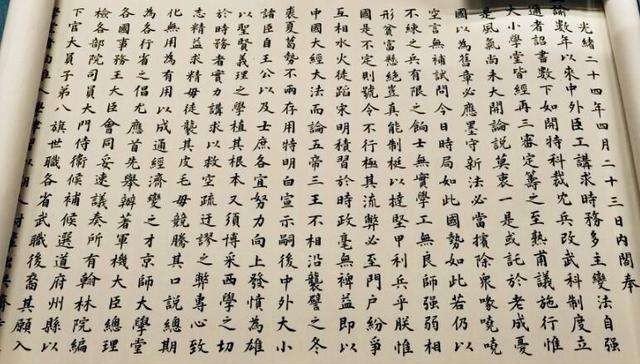 光緒二十四年四月二十三日內閣奉
諭數年以來中外臣工講求時務多主變法自強
邇者詔書數下如開特科裁冗兵改武科制度立
大小學堂皆經再三審定籌之至熟甫議施行惟
是風氣尚未大開論說莫衷一是或託於老成憂
國以為舊章必應墨守新法必當擯除眾喙嘵嘵
空言無補試問今日時局如此國勢如此若仍以
不練之兵有限之餉士無實學工無良師強弱相
形貧富懸絕豈真能制梃以撻堅甲利兵乎朕惟
國是不定則號令不行極其流弊必至門戶紛爭
互相水火徒蹈宋明積習於時政毫無裨益即以
中國大經大法而論五帝三王不相沿襲譬之冬
裘夏葛勢不兩存用特明白宣示嗣後中外大小
諸臣自王公以及士庶各宜努力向上發憤為雄
以聖賢義理之學植其根本又須博采西學之切
於時務者實力講求以救空疏迂謬之弊專心致
志精益求精毋徒襲其皮毛毋競騰其口說總期
化無用為有用以成通經濟變之才京師大學堂
為各行省之倡尤應首先舉辦著軍機大臣總理
各國事務王大臣會同妥速議奏所有翰林院編
檢各部院司員大門侍衛候補候選道府州縣以
下官大員子弟八旗世職各省武職後裔其願入